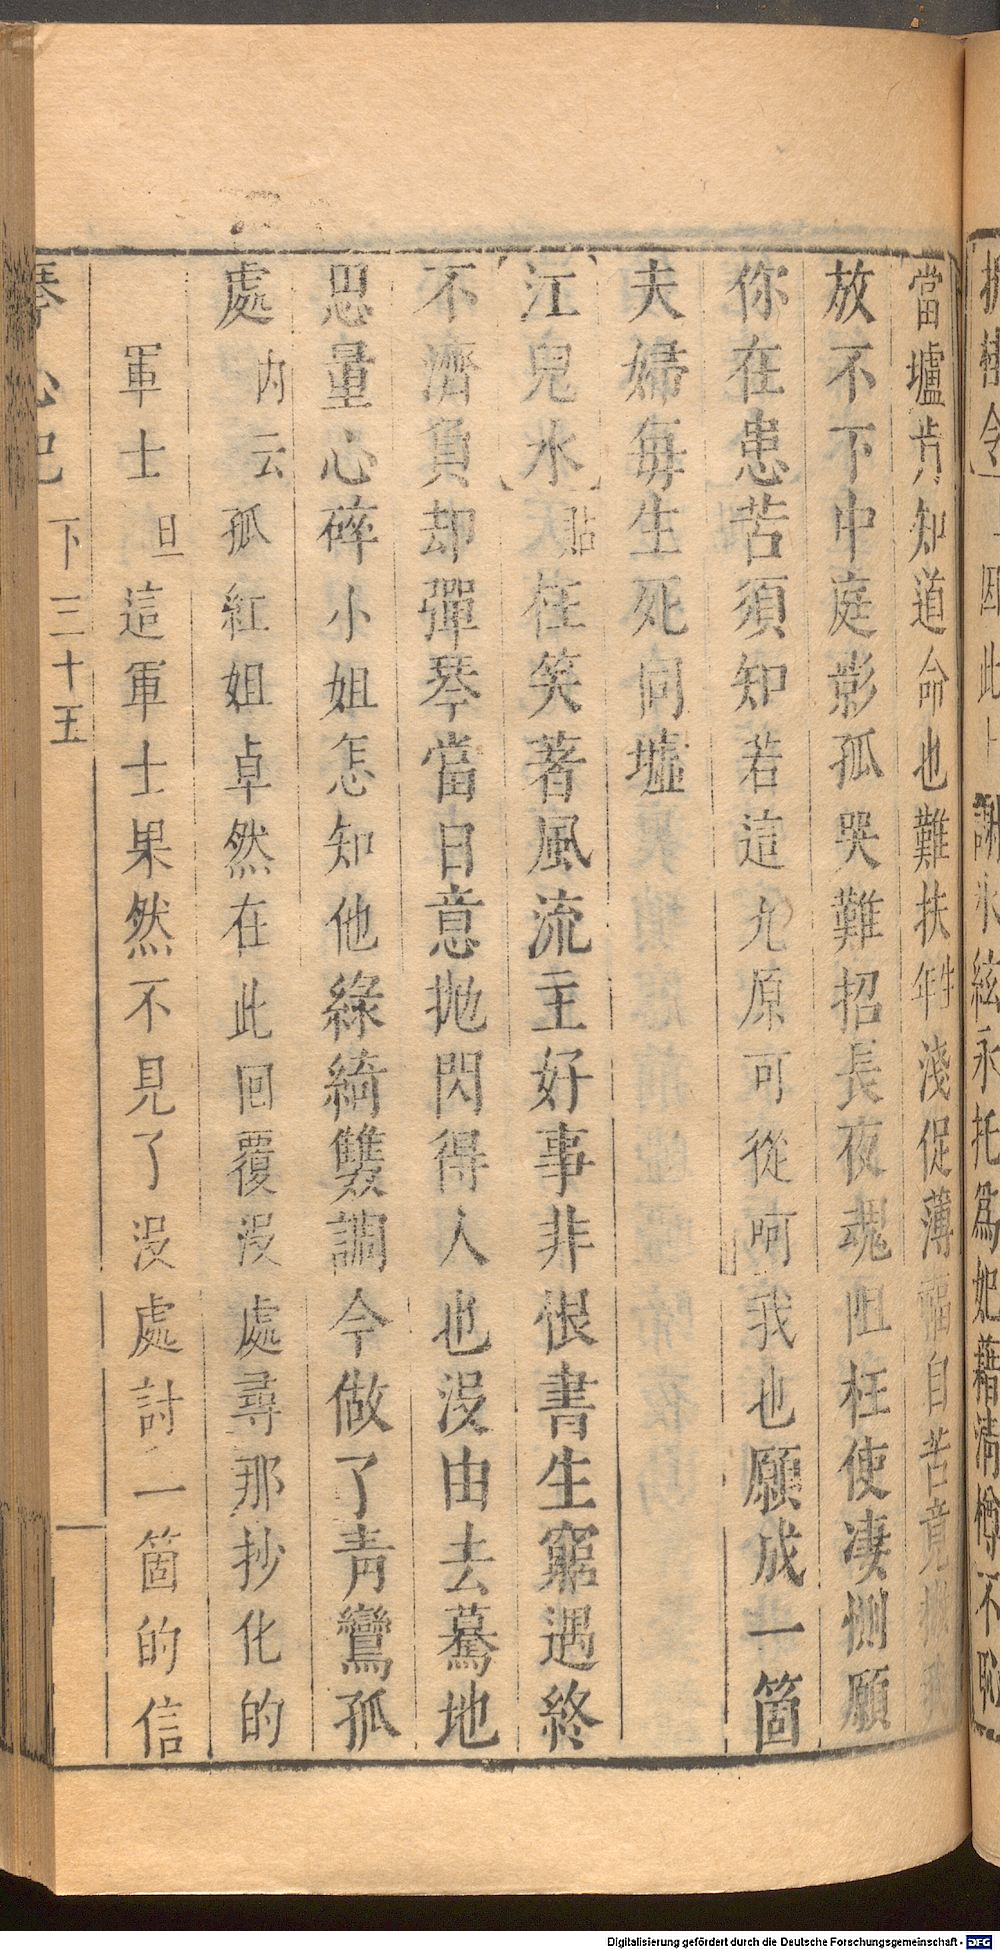 當壚肯知道命也難扶年淺促薄福自苦竟
放不下中庭影孤哭難招長夜魂阻枉使凄惻願
你在患苦須知若這九原可從呵我也願成一箇
夫婦每生死同墟
江兒水 貼 枉笑著風流主好事非恨書生窮遇終
不濟負却彈琴當日意抛閃得人也沒由去驀地
思量心碎小姐怎知他綠綺雙調今做了青鸞孤
處 內云 孤紅姐卓然在此回覆沒處尋那抄化的
軍士 旦 這軍士果然不見了沒處討一箇的信
琴心記 下 三十五
令 因此上 謝冰絃永托為妃藉清樽不恥
Digitalisierung gefördert durch die Deutsche Forschungsgemeinschaft - DFG